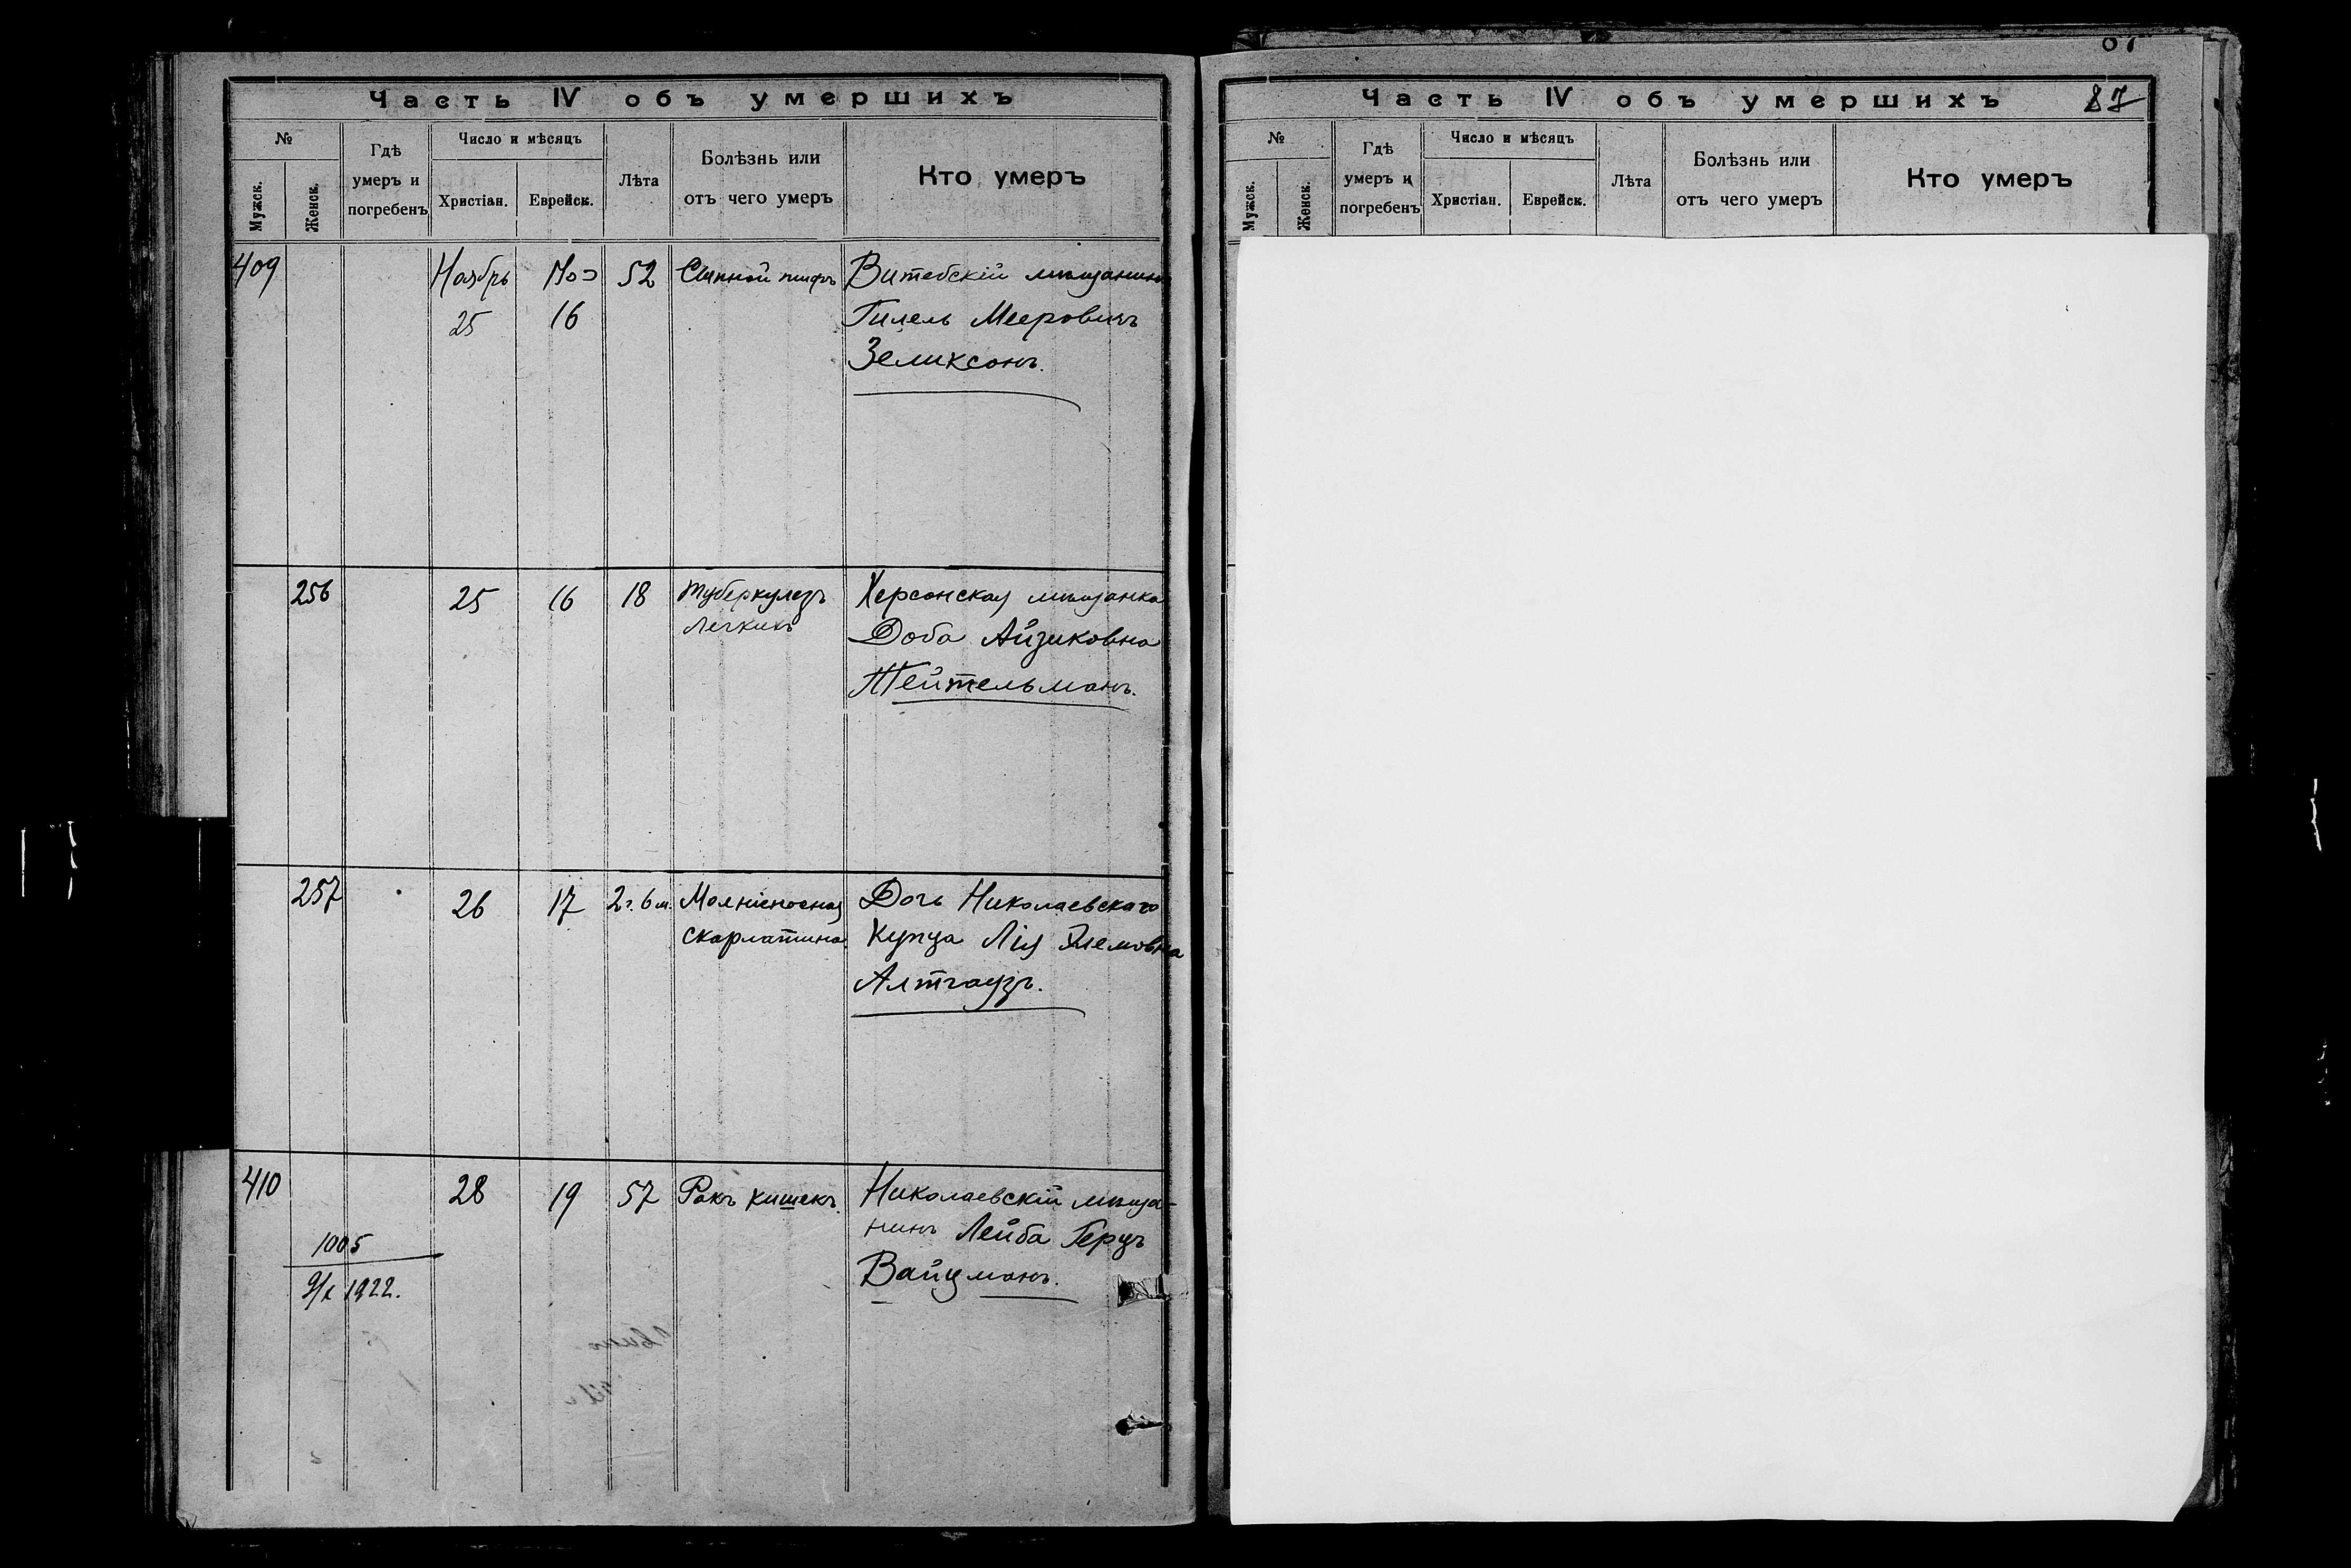 Часть IV объ умершихъ
№
Мужск.
Женск.
Гдѣ
умеръ и
погребенъ
Число и мѣсяцъ
Христіан.
Еврейск.
Лѣта
Болѣзнь или
отъ чего умеръ
Кто умеръ
409
Ноябрь
25
16
52
Сыпной тифъ
Витебскій мѣщанинъ
Гилель Мееровичъ
Зеликсонъ.
256
25
16
18
Туберкулезъ
легкихъ
Херсонская мѣщанка
Доба Айзиковна
Тейтельманъ.
257
26
17
2 г. 6 м.
Молніеносная
скарлатина.
Дочь Николаевскаго
Купца Лія
Алтгаузъ.
410
28
19
57
Ракъ кишекъ.
Николаевскій мѣща-
нинъ Лейба Герцъ
Вайцманъ.
1005
1922.
Часть IV объ умершихъ
87
№
Мужск.
Женск.
Гдѣ
умеръ и
погребенъ
Число и мѣсяцъ
Христіан.
Еврейск.
Лѣта
Болѣзнь или
отъ чего умеръ
Кто умеръ